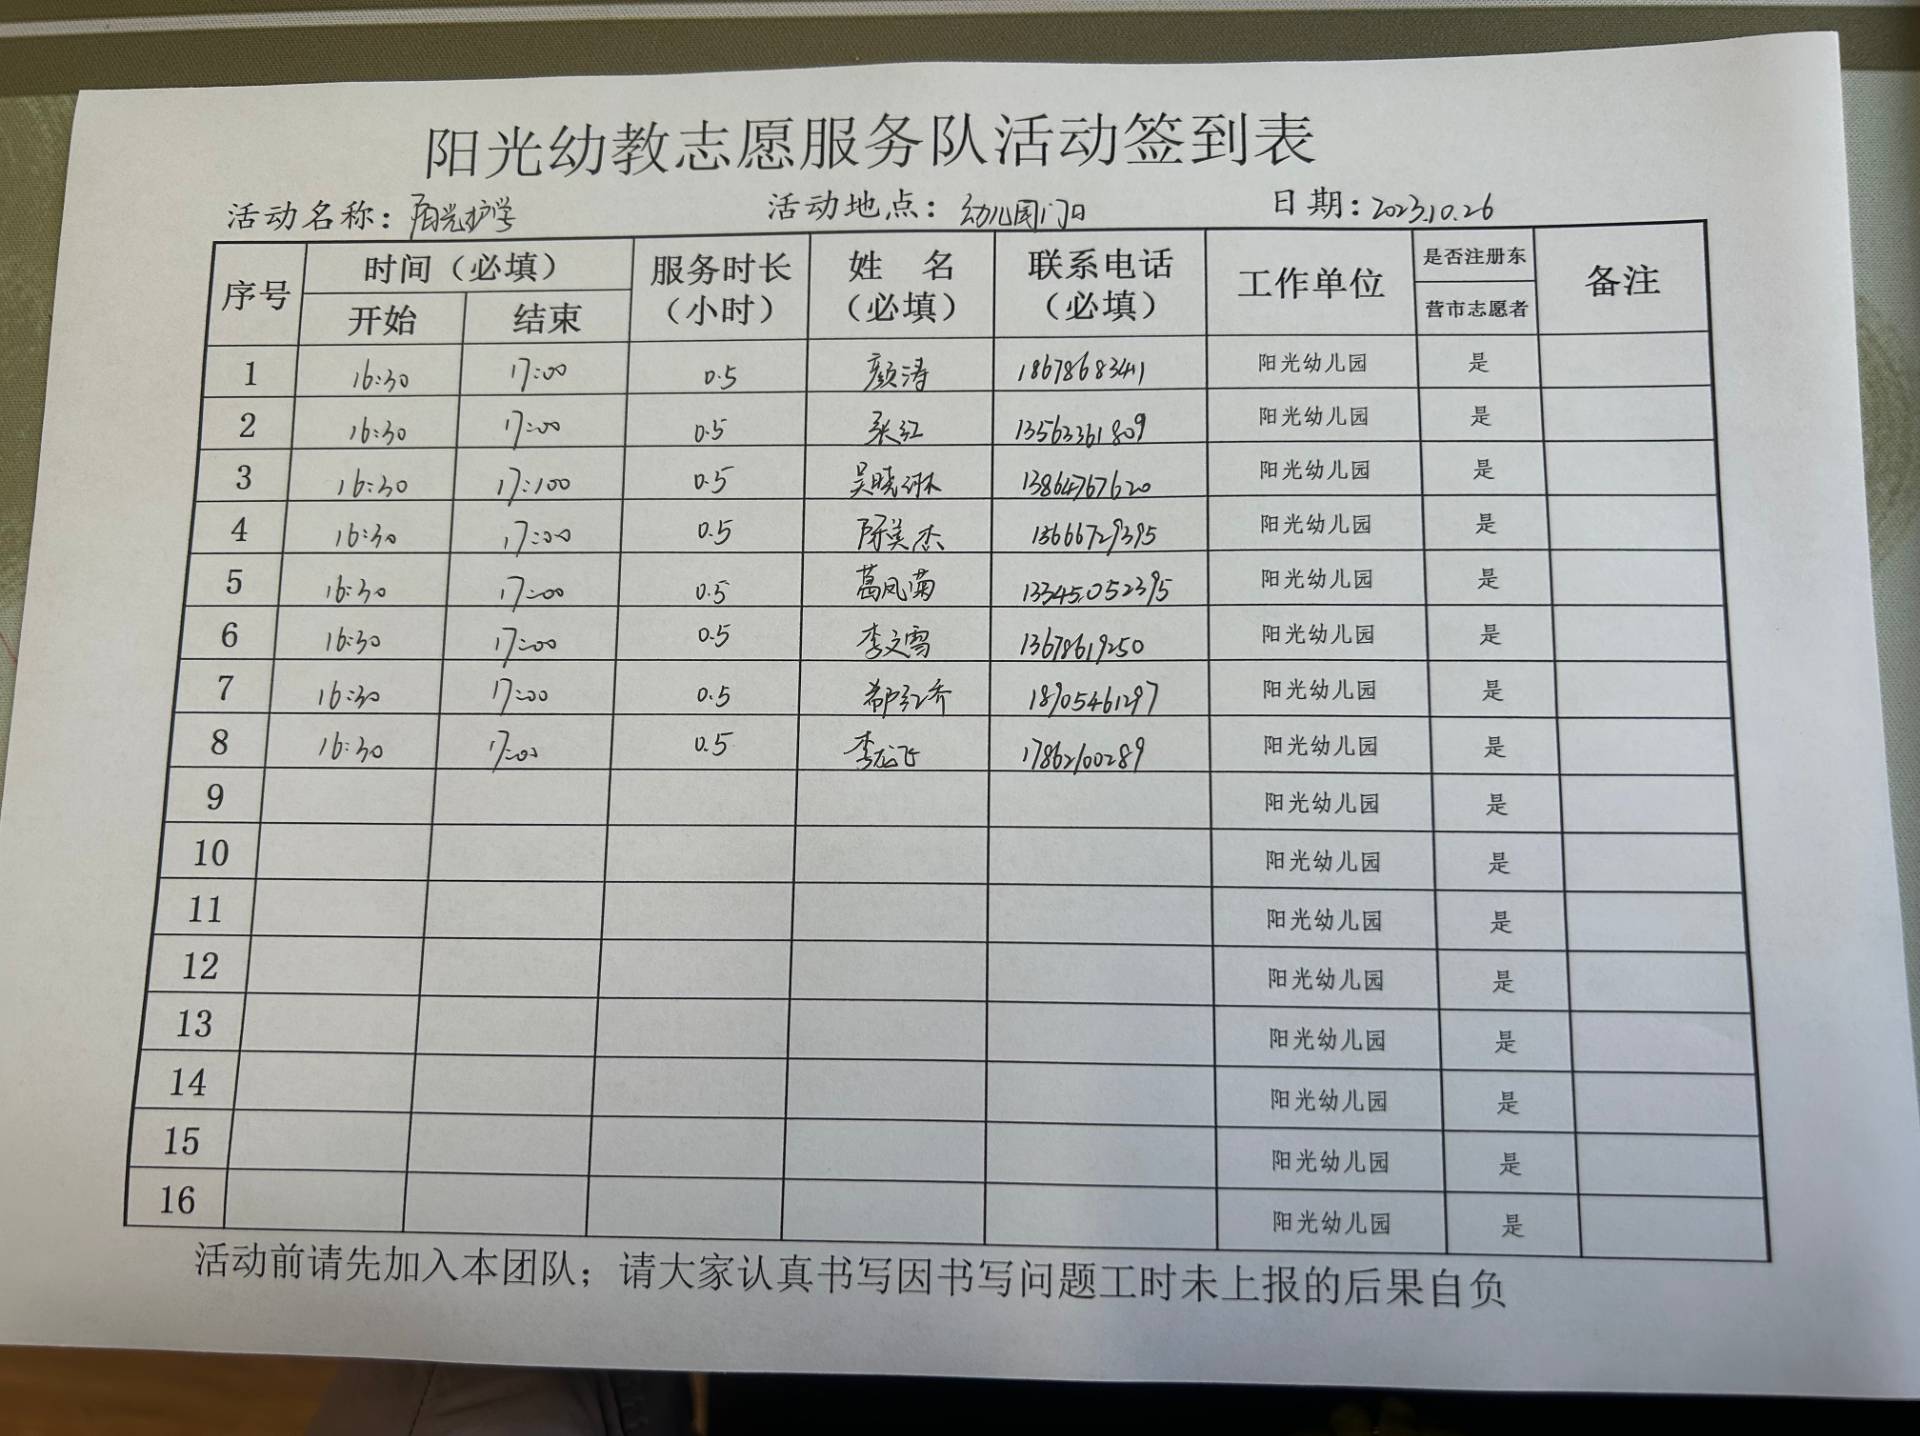 阳光幼教志愿服务队活动签到表
活动名称：阳光护学 活动地点：幼儿园门口 日期：2023.10.26
序号 时间（必填） 服务时长（小时） 姓 名（必填） 联系电话（必填） 工作单位 是否注册东营市志愿者 备注
开始 结束
1 16:30 17:00 0.5 颜涛 18678683411 阳光幼儿园 是
2 16:30 17:00 0.5 张红 13563361809 阳光幼儿园 是
3 16:30 17:100 0.5 吴晓琳 13864767620 阳光幼儿园 是
4 16:30 17:00 0.5 陈美杰 13666729395 阳光幼儿园 是
5 16:30 17:00 0.5 葛凤菊 13345052395 阳光幼儿园 是
6 16:30 17:00 0.5 李文雪 13678619250 阳光幼儿园 是
7 16:30 17:00 0.5 红乔 18905461297 阳光幼儿园 是
8 16:30 17:00 0.5 李龙飞 17862100289 阳光幼儿园 是
9 阳光幼儿园 是
10 阳光幼儿园 是
11 阳光幼儿园 是
12 阳光幼儿园 是
13 阳光幼儿园 是
14 阳光幼儿园 是
15 阳光幼儿园 是
16 阳光幼儿园 是
活动前请先加入本团队；请大家认真书写因书写问题工时未上报的后果自负